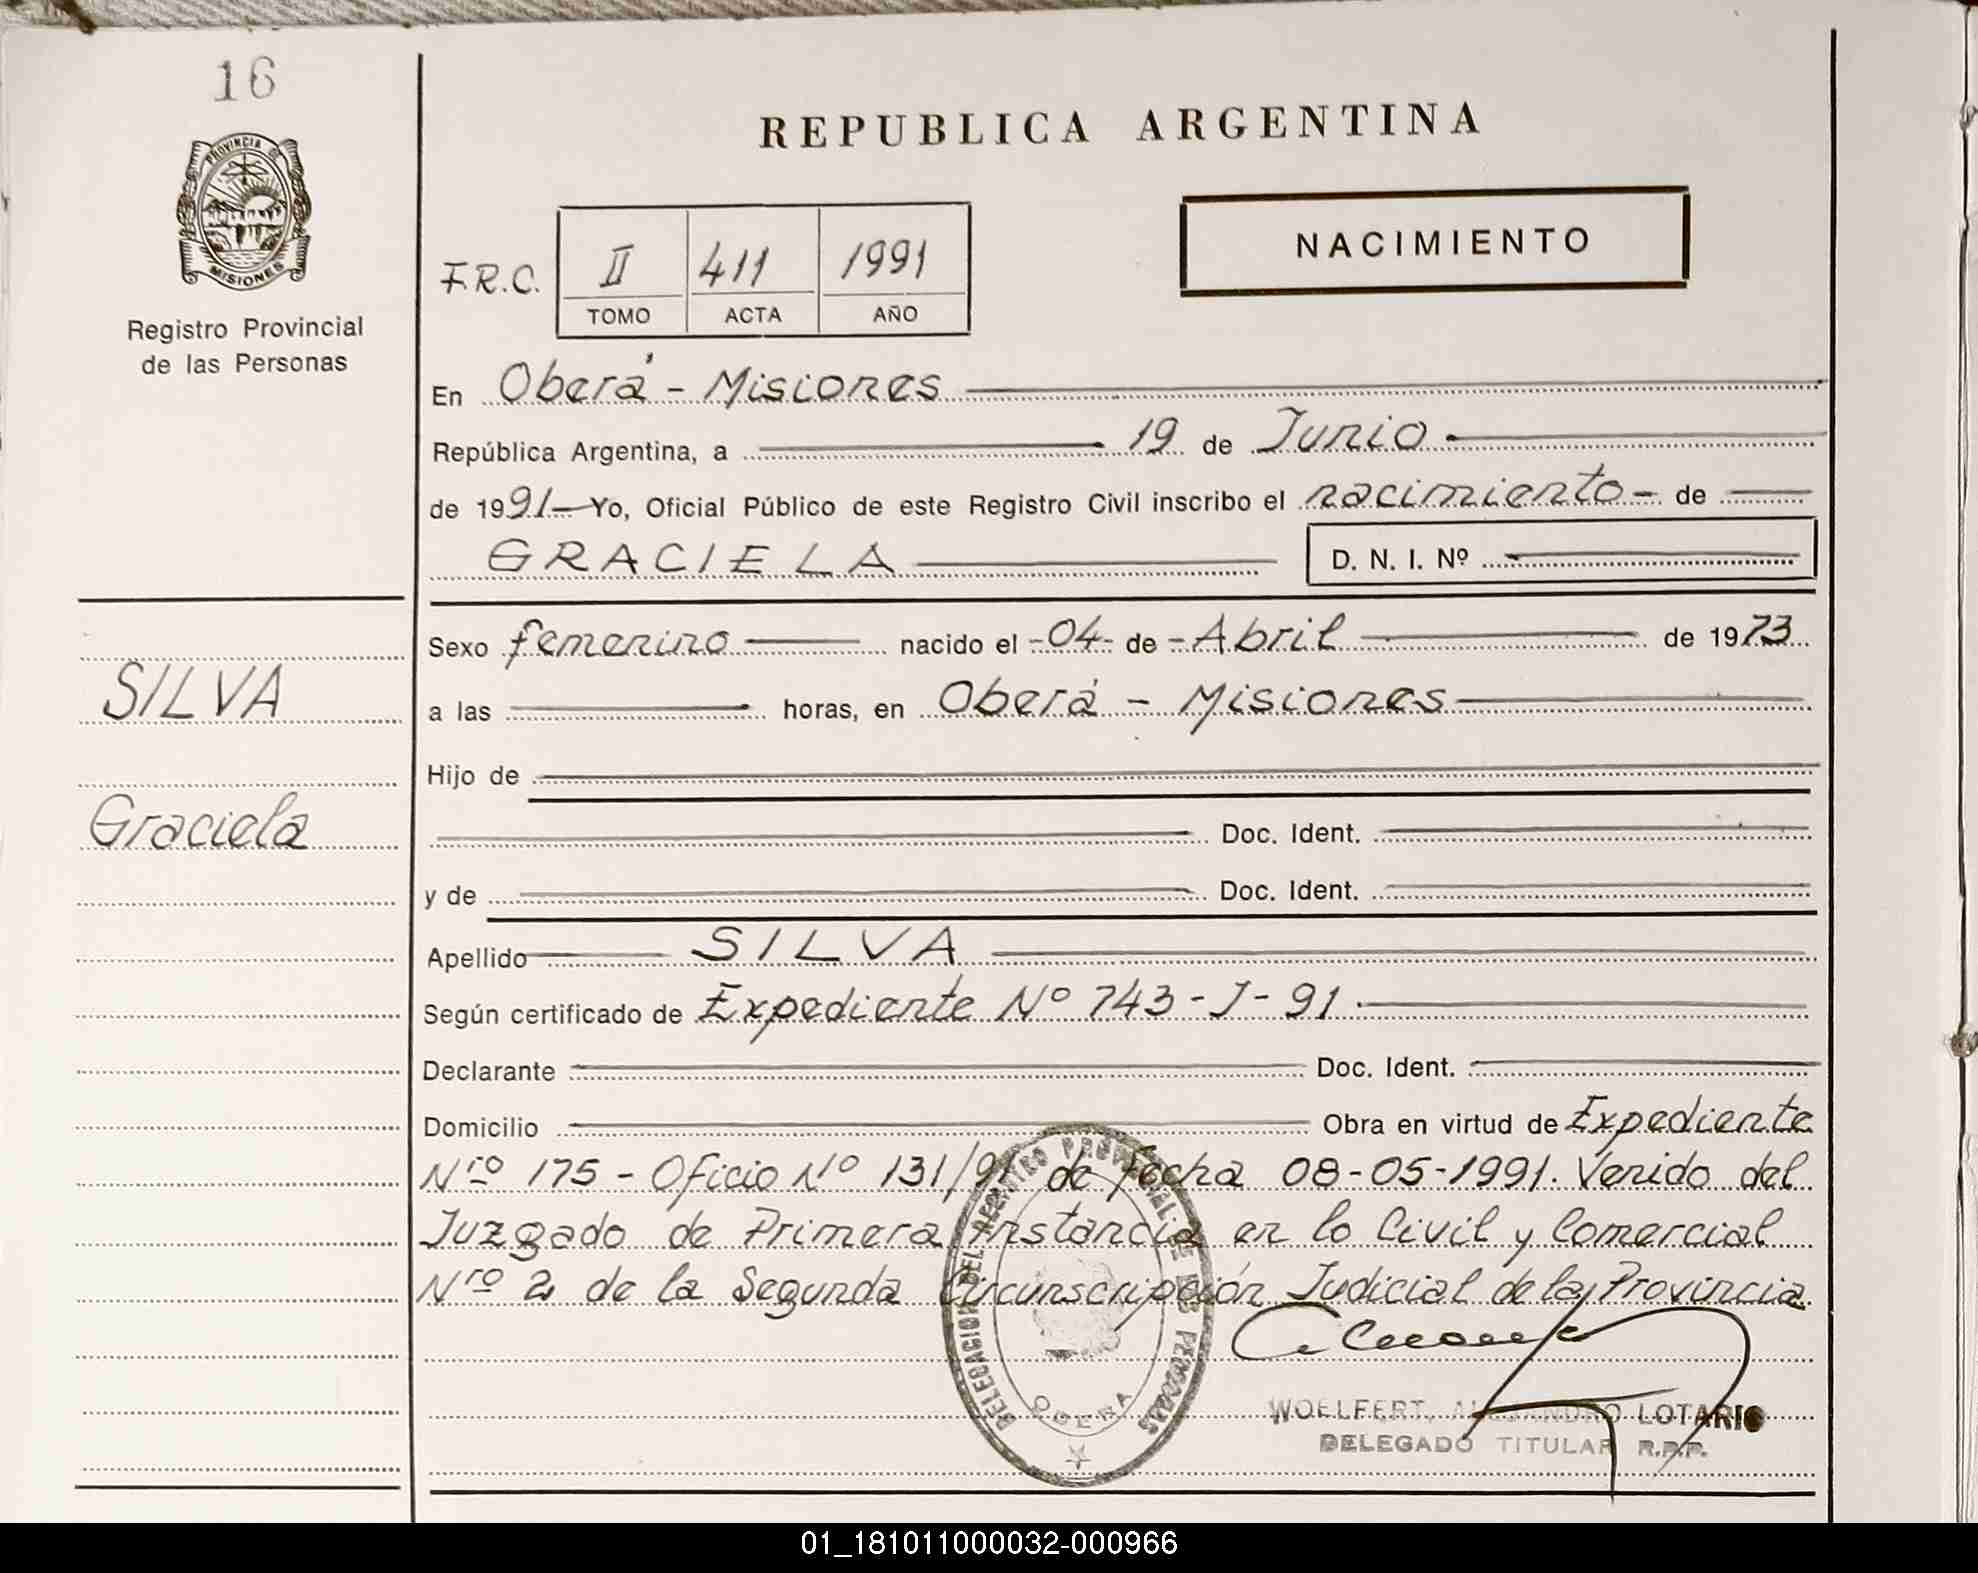 16
PROVINCIA DE
MISIONES
Registro Provincial
de las Personas
SILVA
Graciela
REPUBLICA ARGENTINA
NACIMIENTO
F.R.C. II 411 1991
TOMO ACTA AÑO
En Oberá - Misiones
República Argentina, a 19 de Junio
de 1991 Yo, Oficial Público de este Registro Civil inscribo el nacimiento - de
GRACIELA D. N. I. Nº
Sexo femenino nacido el -04- de - Abril de 1973
a las horas, en Oberá - Misiones
Hijo de
Doc. Ident.
y de Doc. Ident.
Apellido SILVA
Según certificado de Expediente Nº 743-J-91.
Declarante Doc. Ident.
Domicilio Obra en virtud de Expediente
Nro 175 - Oficio Nº 131/91 de Fecha 08-05-1991. Venido del
Juzgado de Primera Instancia en lo Civil y Comercial
Nro 2, de la Segunda Circunscripción Judicial de la Provincia.
DELEGACION DEL REGISTRO PROVINCIAL DE LAS PERSONAS
OBERA
WOELFERT, ALEJANDRO LOTARIO
DELEGADO TITULAR R.P.P.
01_181011000032-000966